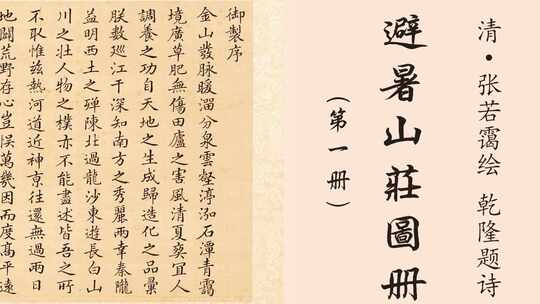 清·张若霭绘 乾隆题诗
避暑山莊圖册
（第一册）
御製序
金山發脉暖溜分泉雲壑渟泓石潭青靄
境廣草肥無傷田廬之害風清夏爽宜人
調養之功自天地之生成歸造化之品彙
朕數巡江干深知南方之秀麗兩幸秦隴
益明西土之殫陳北過龍沙東遊長白山
川之壯人物之樸亦不能盡述皆吾之所
不取惟茲熱河道近神京往還無過兩日
地闢荒野存心豈悞萬幾因而度高平遠